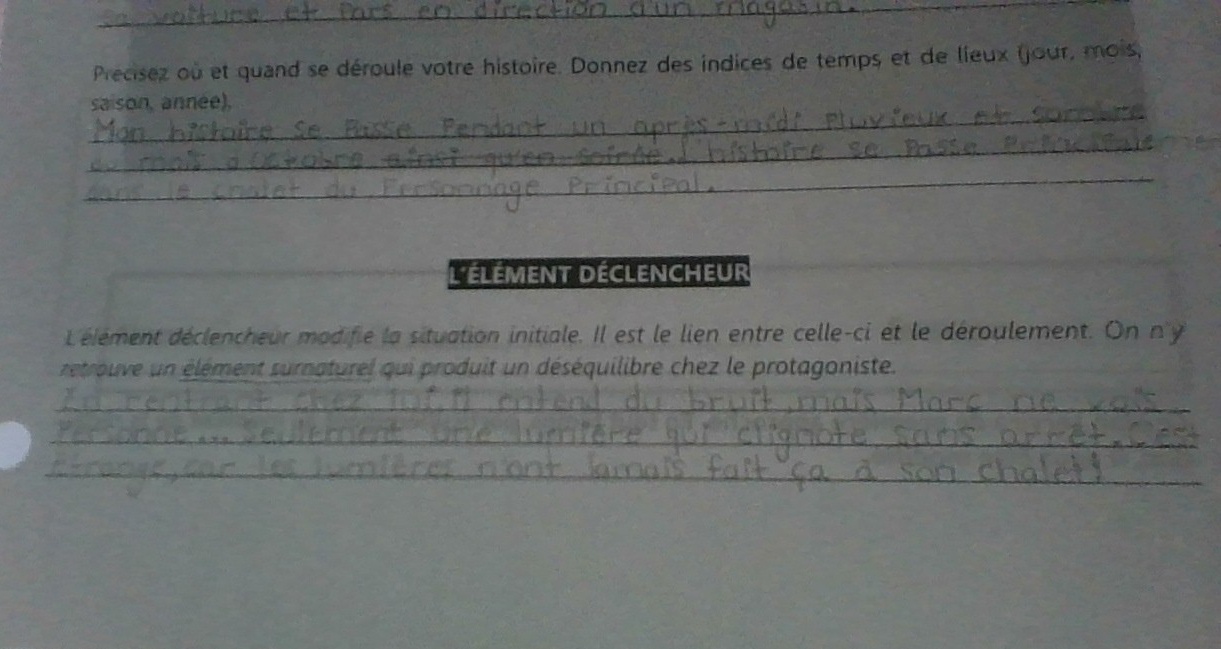 sa voiture et pars en direction d'un magasin.
Précisez où et quand se déroule votre histoire. Donnez des indices de temps et de lieux (jour, mois,
saison, année).
Mon histoire se passe pendant un après-midi pluvieux et sombre
du mois d'octobre ainsi qu'en soirée. L'histoire se passe principalement
dans le chalet du personnage principal.
L'ÉLÉMENT DÉCLENCHEUR
L'élément déclencheur modifie la situation initiale. Il est le lien entre celle-ci et le déroulement. On n'y
retrouve un élément surnaturel qui produit un déséquilibre chez le protagoniste.
En rentrant chez lui, il entend du bruit, mais Marc ne vois
personne... Seulement une lumière qui clignote sans arrêt. C'est
étrange, car les lumières n'ont jamais fait ça à son chalet!